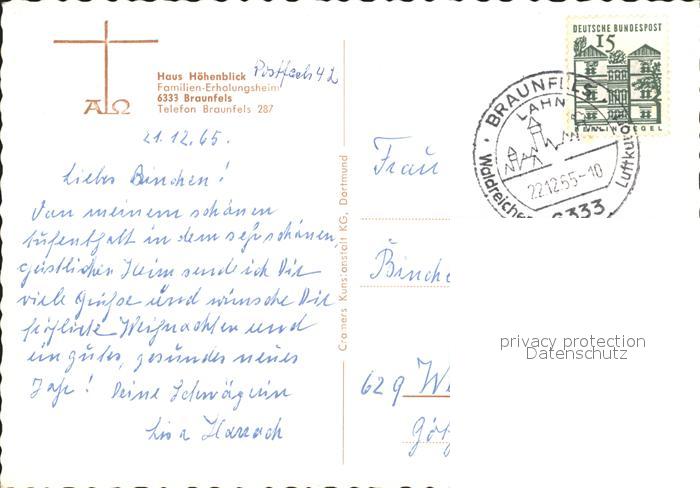 Haus Höhenblick
Familien-Erholungsheim
6333 Braunfels
Telefon Braunfels 287
Postfach 42
ΑΩ
21.12.65.
Liebes Binchen!
Von meinem schönen
Aufenthalt in dem sehr schönen,
geistlichen Heim sende ich Dir
viele Grüße und wünsche Dir
fröhliche Weihnachten und
ein gutes, gesundes neues
Jahr! Deine Schwägerin
Lisa
Cramers Kunstanstalt KG, Dortmund
DEUTSCHE BUNDESPOST
15
BERLIN TEGEL
BRAUNFELS
LAHN
22.12.65-10
Waldreicher
Luftkuro
6333
Frau
Binche
629 We
privacy protection
Datenschutz